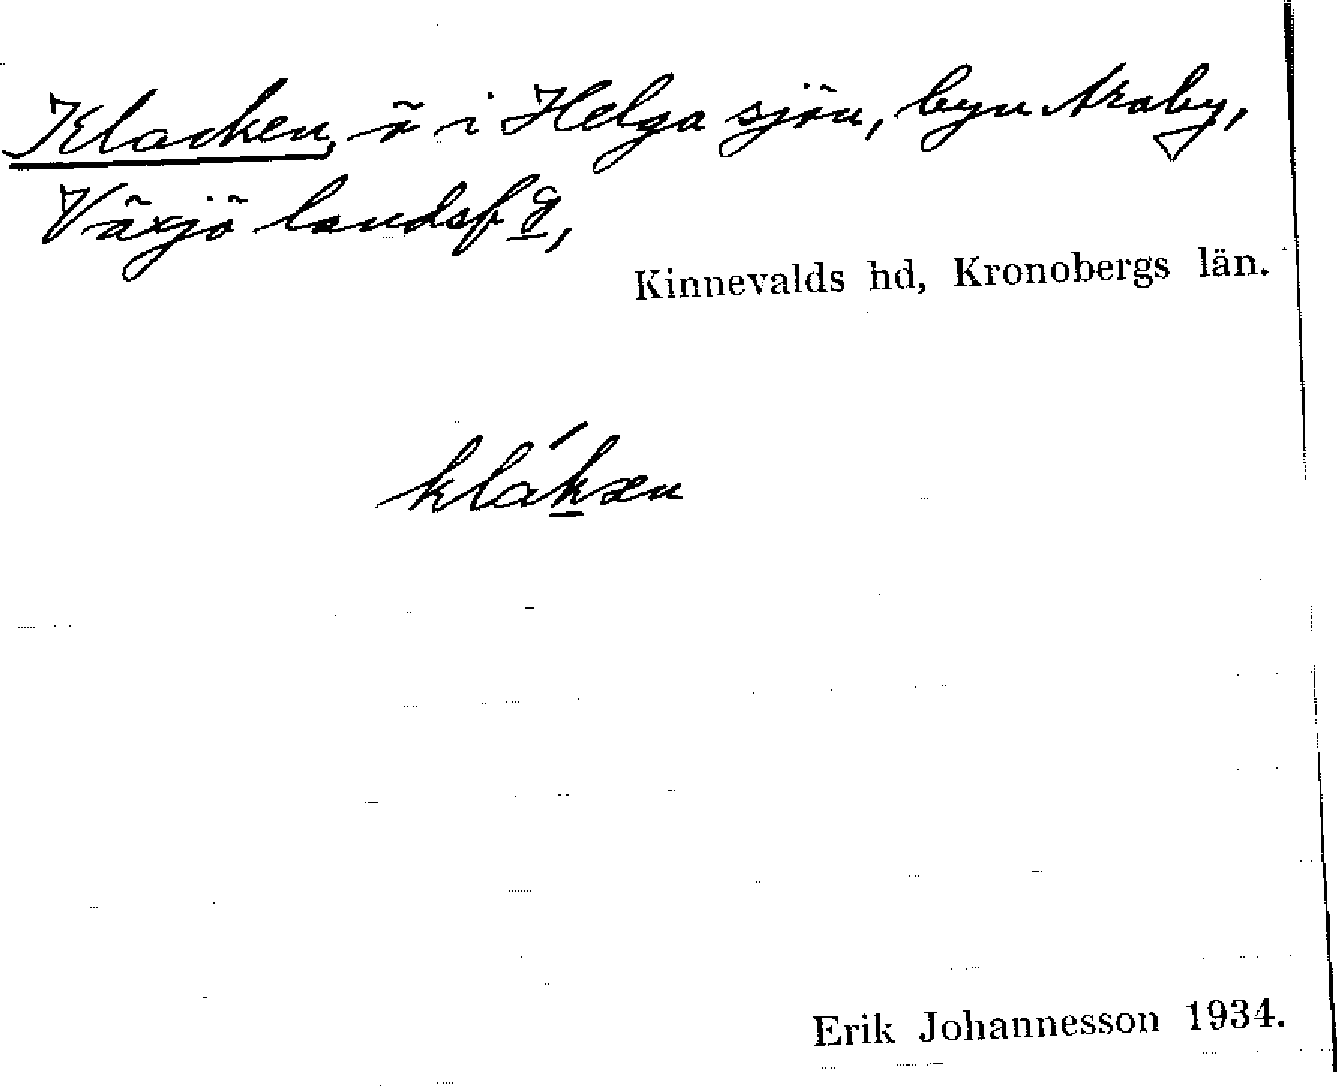 Klacken, ö i Helgasjön, byn Araby,
Växjö landsf g,
Kinnevalds hd, Kronobergs län.
klák̲æn
Erik Johannesson 1934.